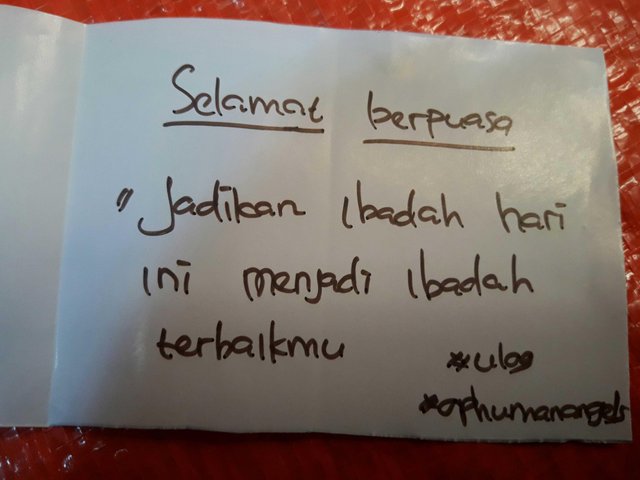 Selamat berpuasa
" Jadikan Ibadah hari
ini menjadi Ibadah
terbaikmu
#ulog
#ophumanangels